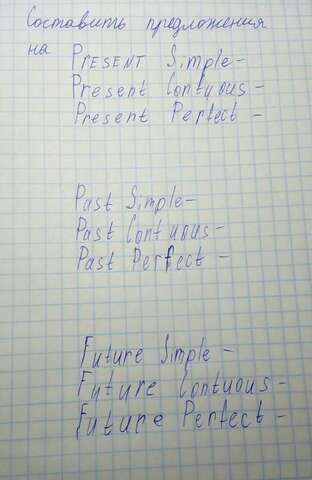 Составить предложения
на Present Simple -
Present Contyous -
Present Perfect -
Past Simple -
Past Contuous -
Past Perfect -
Future Simple -
Future Contuous -
Future Perfect -